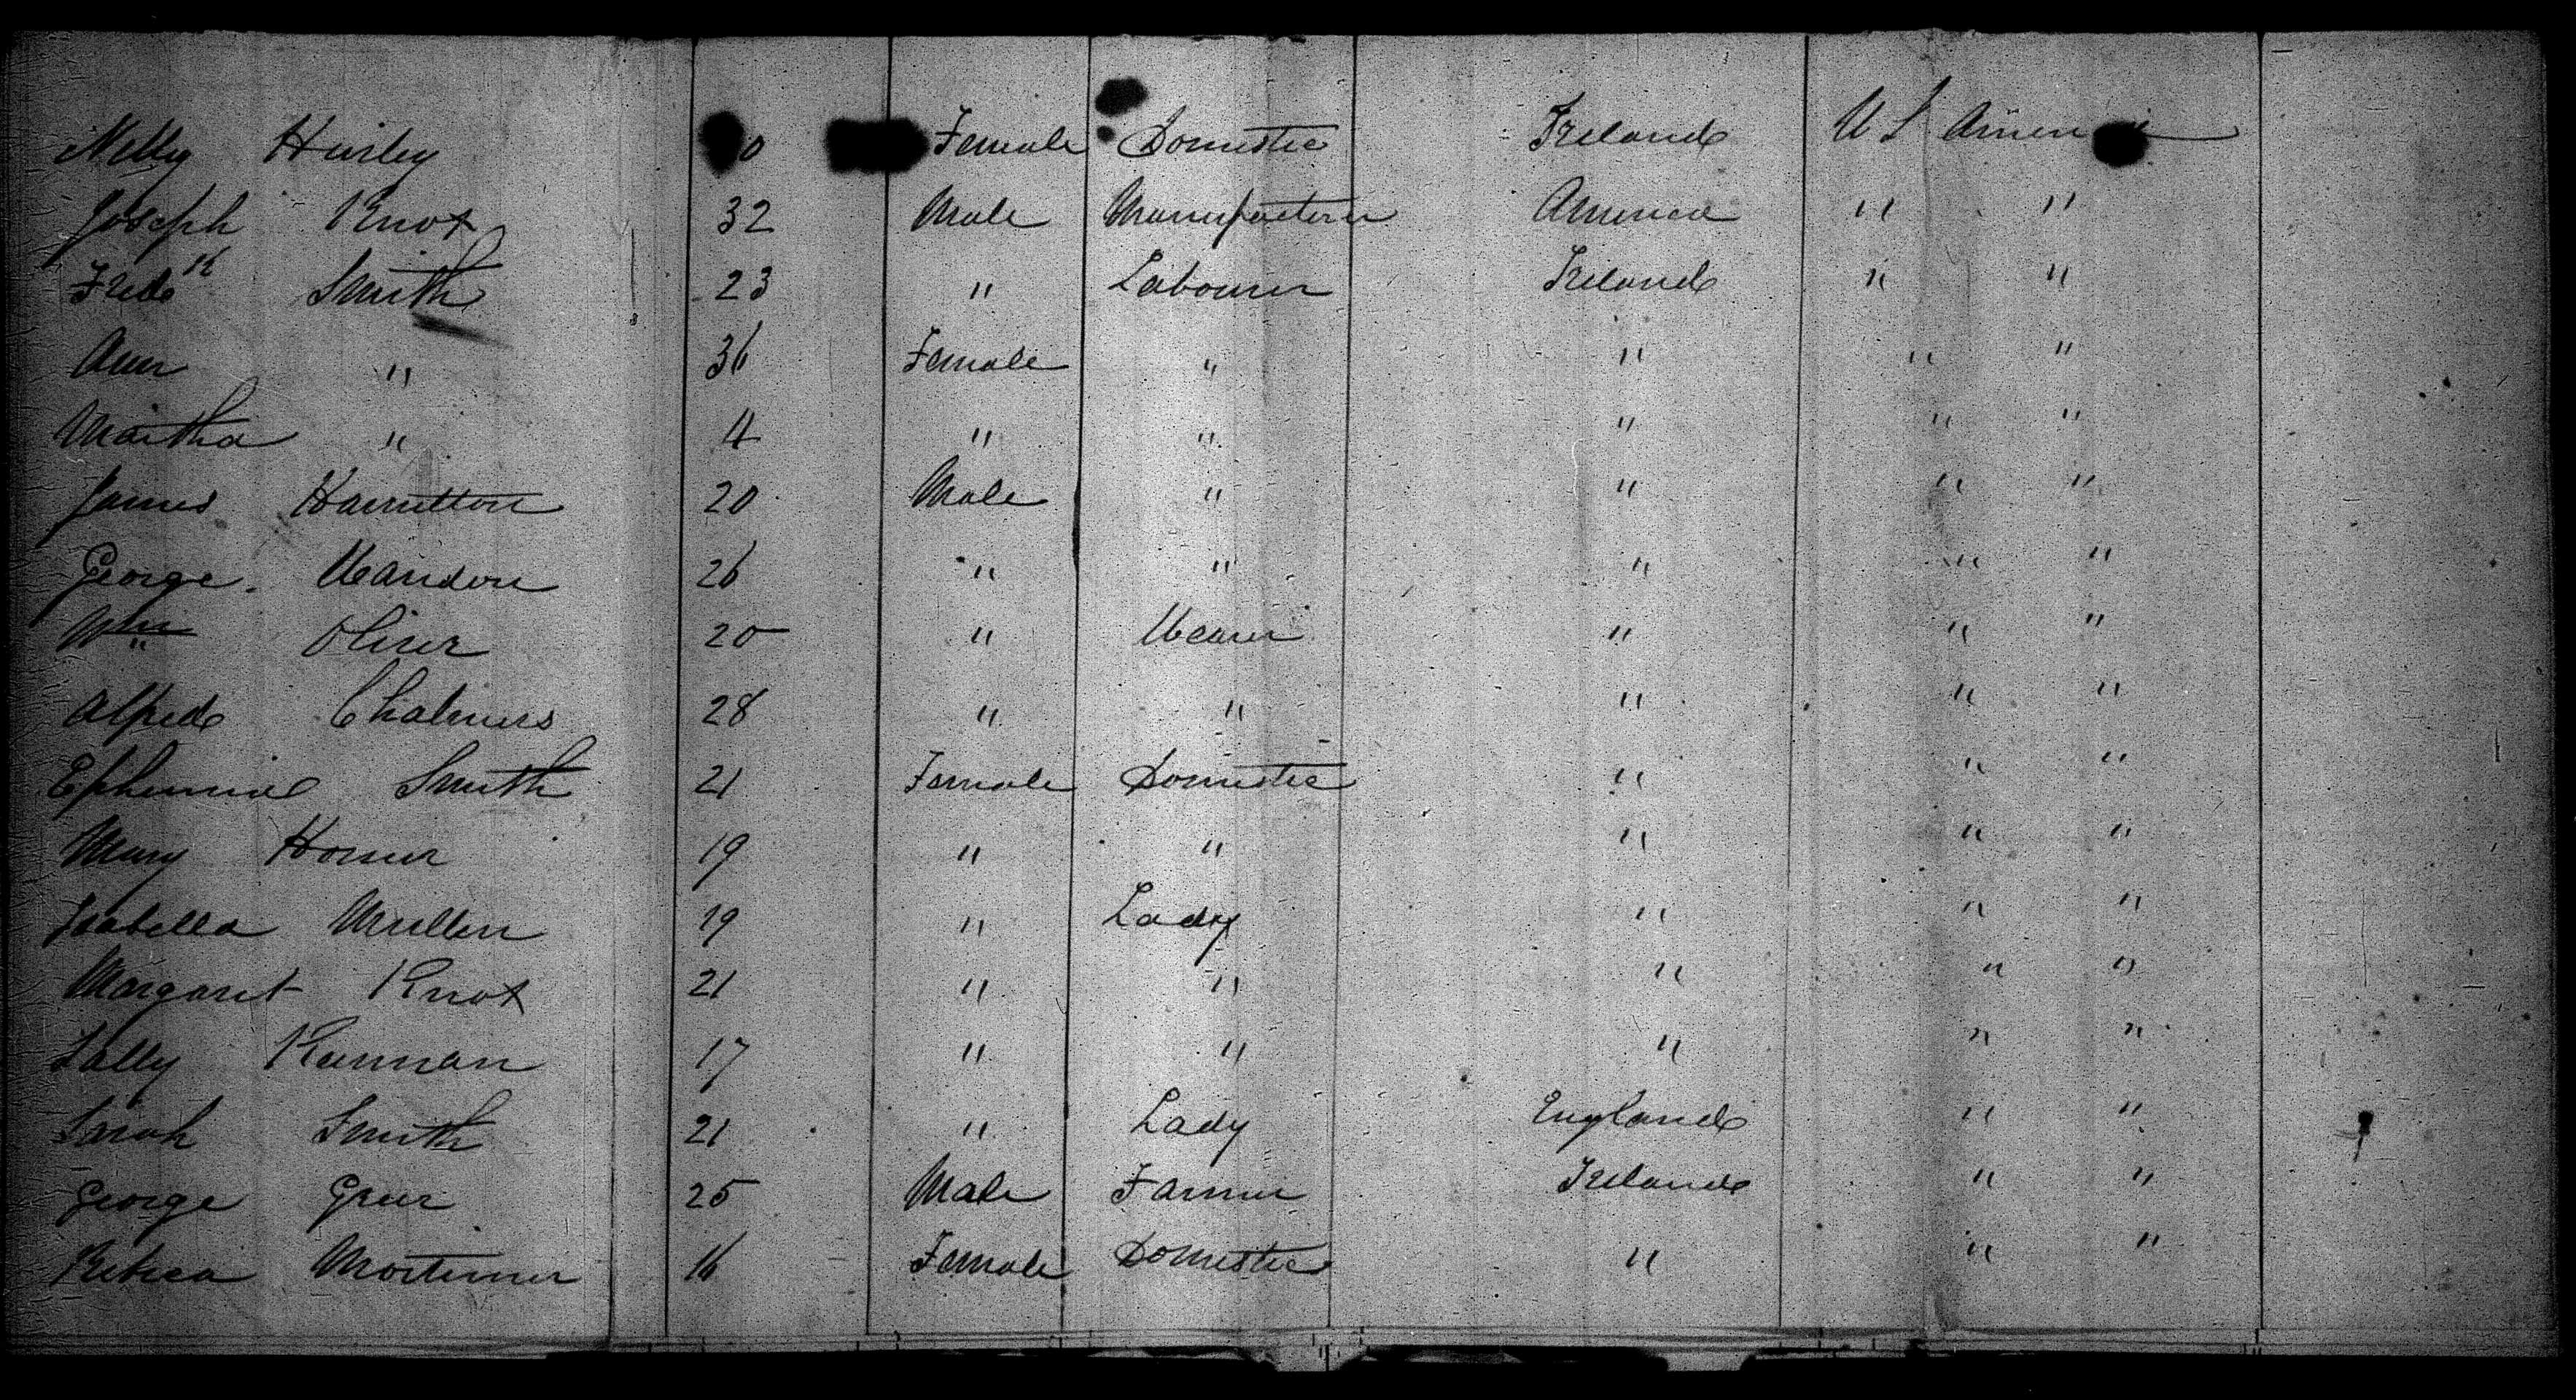 Nelly Hurley 0 Female Domestic Ireland U S Ameri
Joseph Knox 32 Male Manufacturer America " "
Fredk Smith 23 " Labourer Ireland " "
Ann " 36 Female " " " "
Martha " 4 " " " " "
James Hamilton 20 Male " " " "
George 26 " " " " "
Wm Oliver 20 " " " "
Alfred Chalmers 28 " " " " "
Ephemia Smith 21 Female Domestic " " "
Mary 19 " " " " "
Isabella Mullen 19 " Lady " " "
Margaret Knox 21 " " " " "
Sally 17 " " " " "
Sarah Smith 21 " Lady England " "
George Greer 25 Male Farmer Ireland " "
Rebeca Mortimer 16 Female Domestic " " "